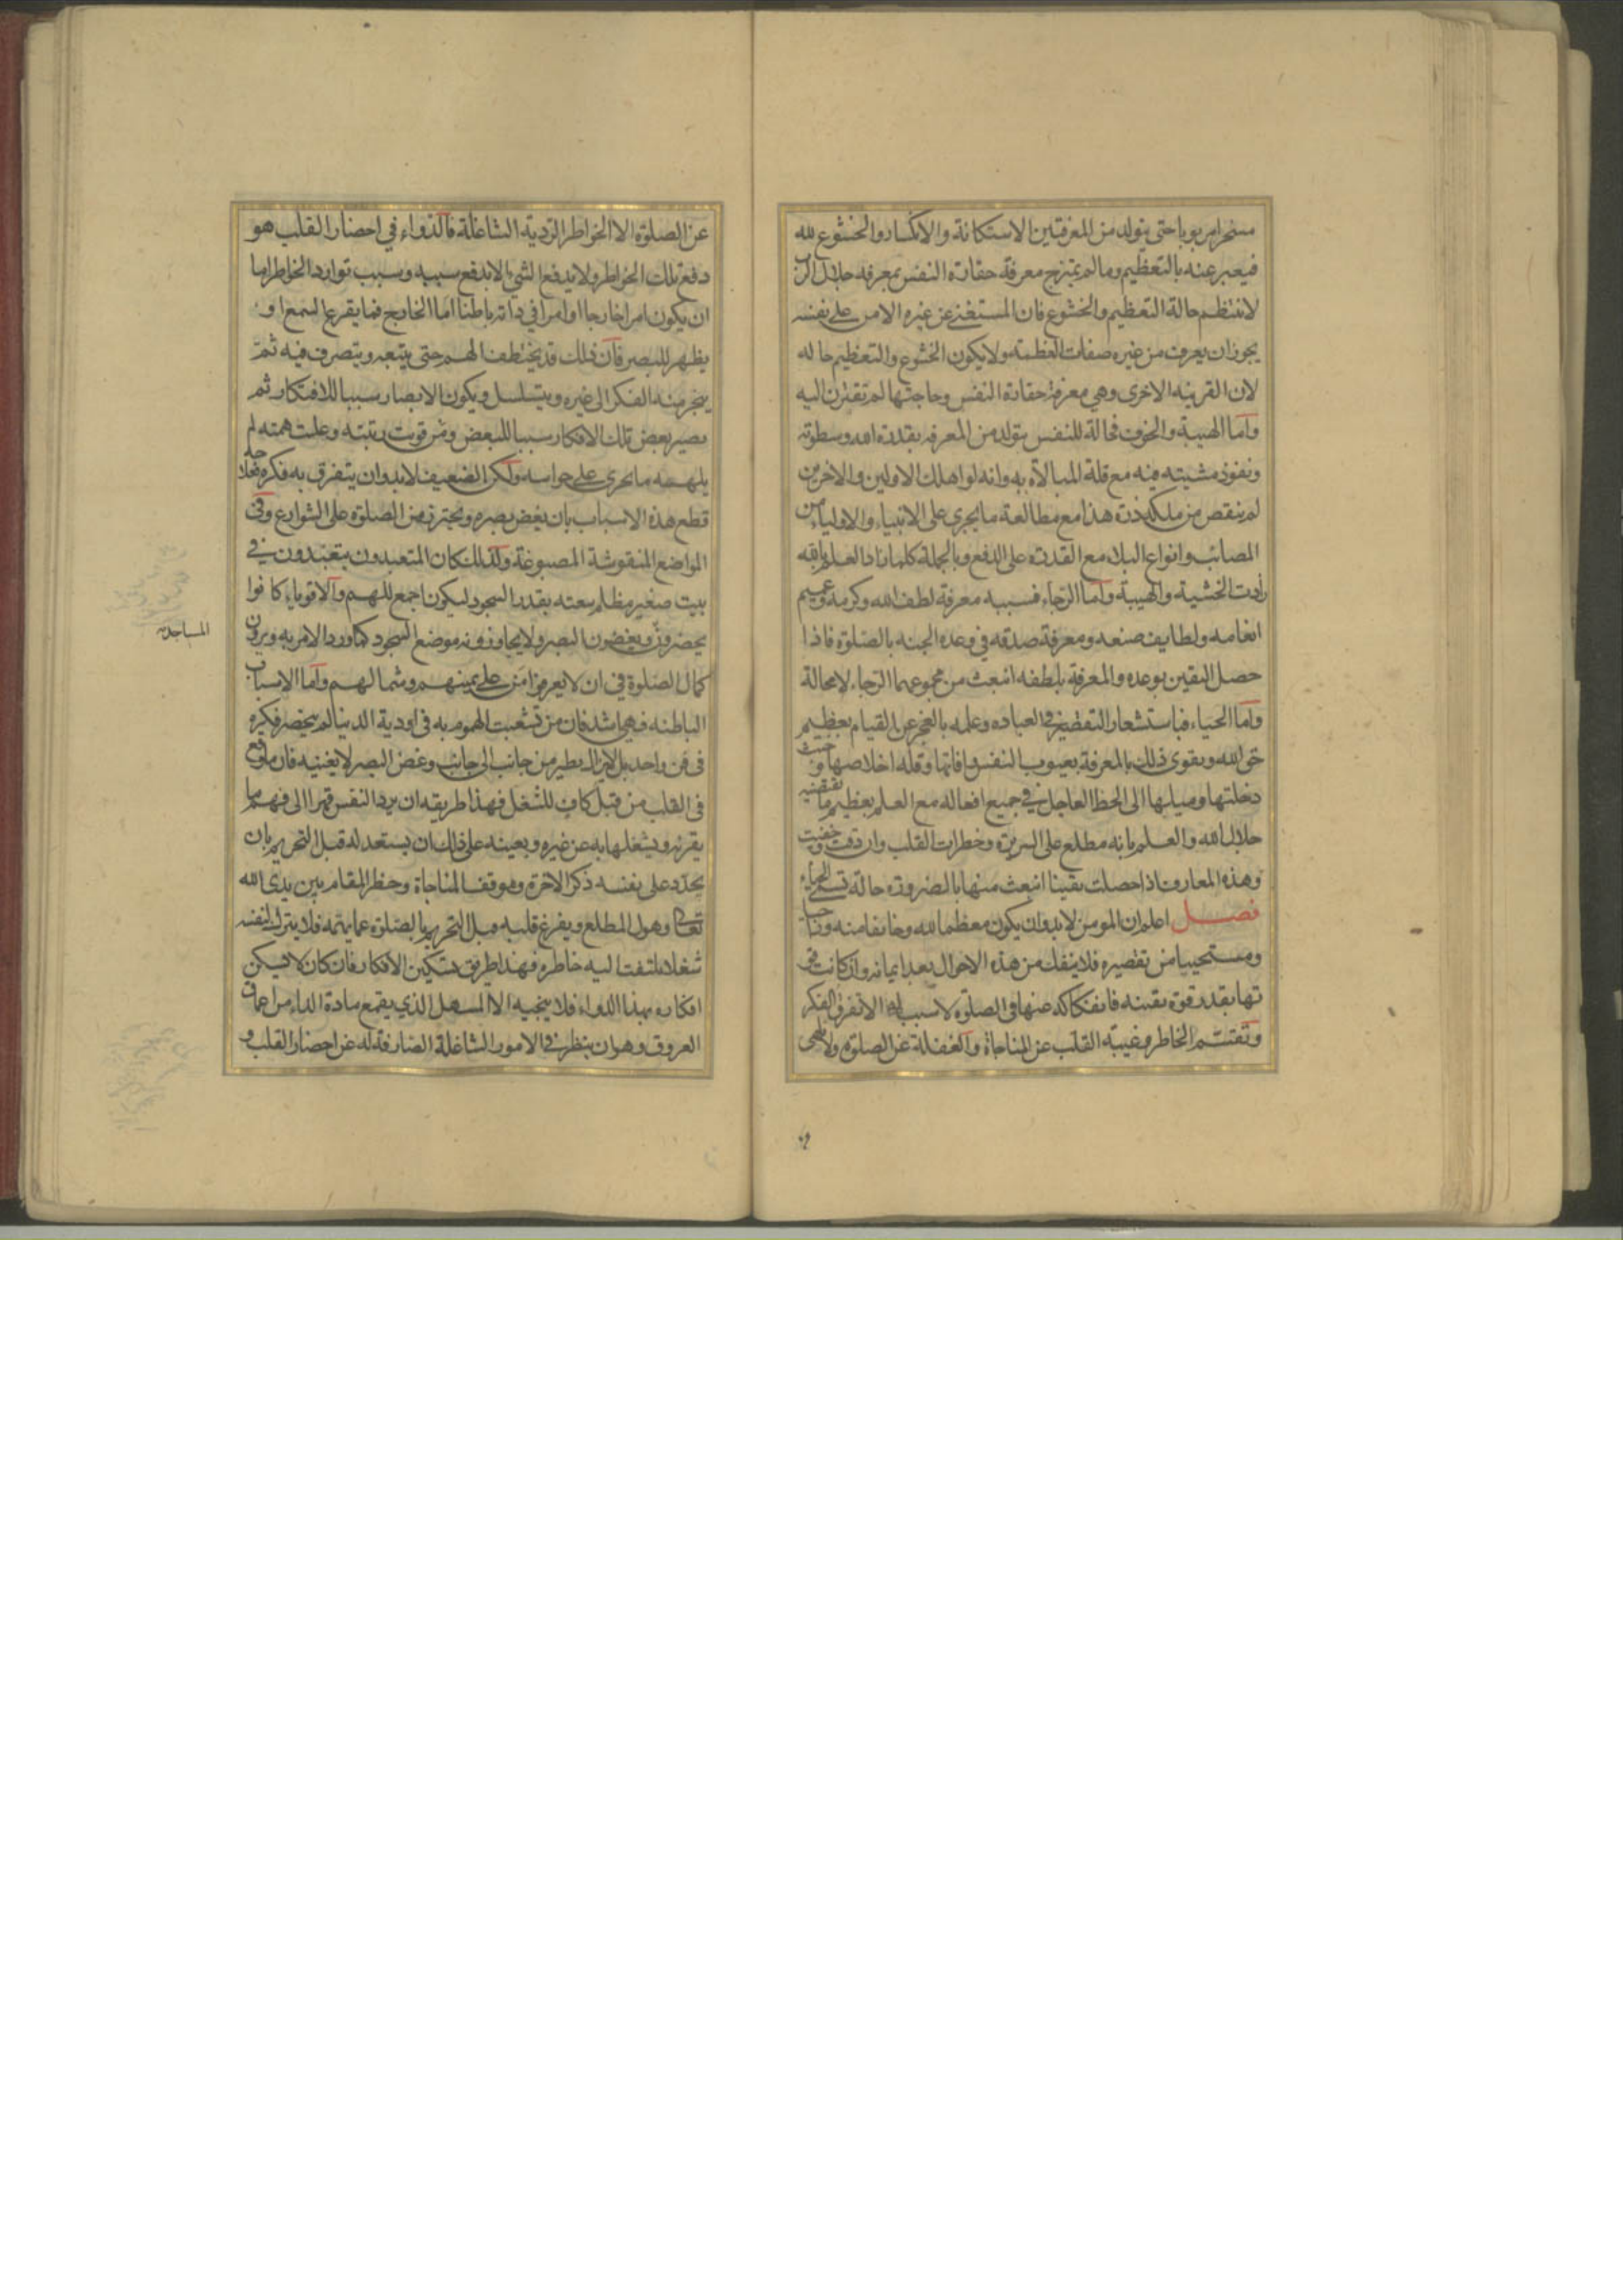 مسخرا مربوبا حتى يتولد من المعرفتين الاستكانة والانكسار والخشوع لله
فيعبر عنه بالتعظيم وما لم يمتزج معرفة حقارة النفس بمعرفة جلال الرب
لا ينتظم حالة التعظيم والخشوع فان المستغنى عن غيره الامن على نفسه
يجوز ان يعرف من غيره صفات العظمة ولا يكون الخشوع والتعظيم حاله
لان القرينه الاخرى وهي معرفة حقارة النفس وحاجتها لم تقترن اليه
واما الهيبة والخوف فحالة للنفس يتولد من المعرفه بقدرة الله وسطوته
ونفوذ مشيته فيه مع قلة المبالاة به وانه لو اهلك الاولين والاخرين
لم ينقص من ملكه ذرة هذا مع مطالعة ما يجري على الانبياء والاولياء من
المصائب وانواع البلاء مع القدرة على الدفع وبالجملة كلما زاد العلم بالله
زادت الخشية والهيبة واما الرجاء فسببه معرفة لطف الله وكرمه وعميم
انعامه ولطايف صنعه ومعرفة صدقه في وعده الجنه بالصلوة فاذا
حصل اليقين بوعده والمعرفة بلطفه انبعث من مجموعهما الرجاء لا محالة
واما الحياء فباستشعار التقصير في العباده وعلمه بالعجز عن القيام بعظيم
حق الله ويقوى ذلك بالمعرفة بعيوب النفس وافاتها وقله اخلاصها وخبث
دخلتها وميلها الى الحظ العاجل في جميع افعاله مع العلم بعظيم ما يقتضيه
جلال الله والعلم بانه مطلع على السريرة وخطرات القلب وان دقت وخفيت
وهذه المعارف اذا حصلت يقينا انبعث منها بالضرورة حالة تسمى الحياء
فصل اعلم ان المومن لا بد وان يكون معظما لله وخايفا منه وراجيا
ومستحييا من تقصيره فلا ينفك من هذه الاحوال بعد ايمانه وان كانت قو
تها بقدر قوة يقينه فانفكاكه عنها في الصلوة لا سبب له الا تفرق الفكر
وتقسم الخاطر وغيبة القلب عن المناجاة والغفلة عن الصلوة ولا يلهى
عن الصلوة الا الخواطر الردية الشاغلة فالدواء في احضار القلب هو
دفع تلك الخواطر ولا يدفع الشئ الا بدفع سببه وسبب توارد الخواطر اما
ان يكون امرا خارجا او امرا في ذاته باطنا اما الخارج فما يقرع السمع او
يظهر للبصر فان ذلك قد يختطف الهم حتى يتبعه ويتصرف فيه ثم
ينجر منه الفكر الى غيره ويتسلسل ويكون الابصار سببا للافتكار ثم
يصير بعض تلك الافكار سببا للبعض ومن قويت رتبته وعلت همته لم
يلهه ما يجرى على حواسه ولكن الضعيف لا بد وان يتفرق به فكره فعلاجه
قطع هذه الاسباب بان يغض بصره ويحترز من الصلوة على الشوارع وفى
المواضع المنقوشة المصبوغة ولذلك كان المتعبدون يتعبدون في
بيت صغير مظلم سعته بقدر السجود ليكون اجمع للهم والاقوياء كانوا
يحضرون ويغضون البصر ولا يجاوزونه موضع السجود كما ورد الامر به ويرون
المساجد
كمال الصلوة في ان لا يعرفوا من على يمينهم وشمالهم واما الاسباب
الباطنه فهي اشد فان من تشعبت الهموم به في اودية الدنيا لم ينحصر فكره
في فن واحد بل لا يزال يطير من جانب الى جانب وغض البصر لا يغنيه فان ما وقع
في القلب من قبل كاف للشغل فهذا طريقه ان يرد النفس قهرا الى فهم ما
يقرئه ويشغلها به عن غيره ويعينه على ذلك ان يستعد له قبل التحريم بان
يجدد على نفسه ذكر الاخرة وموقف المناجاة وخطر المقام بين يدى الله
تعالى وهول المطلع ويفرغ قلبه قبل التحريم بالصلوة عما يهمه فلا يترك لنفسه
شغلا يلتفت اليه خاطره فهذا طريق تسكين الافكار فان كان لا يسكن
افكاره بهذا الدواء فلا ينجيه الا المسهل الذي يقمع مادة الداء من اعماق
العروق وهو ان ينظر في الامور الشاغلة الصارفة له عن احضار القلب و